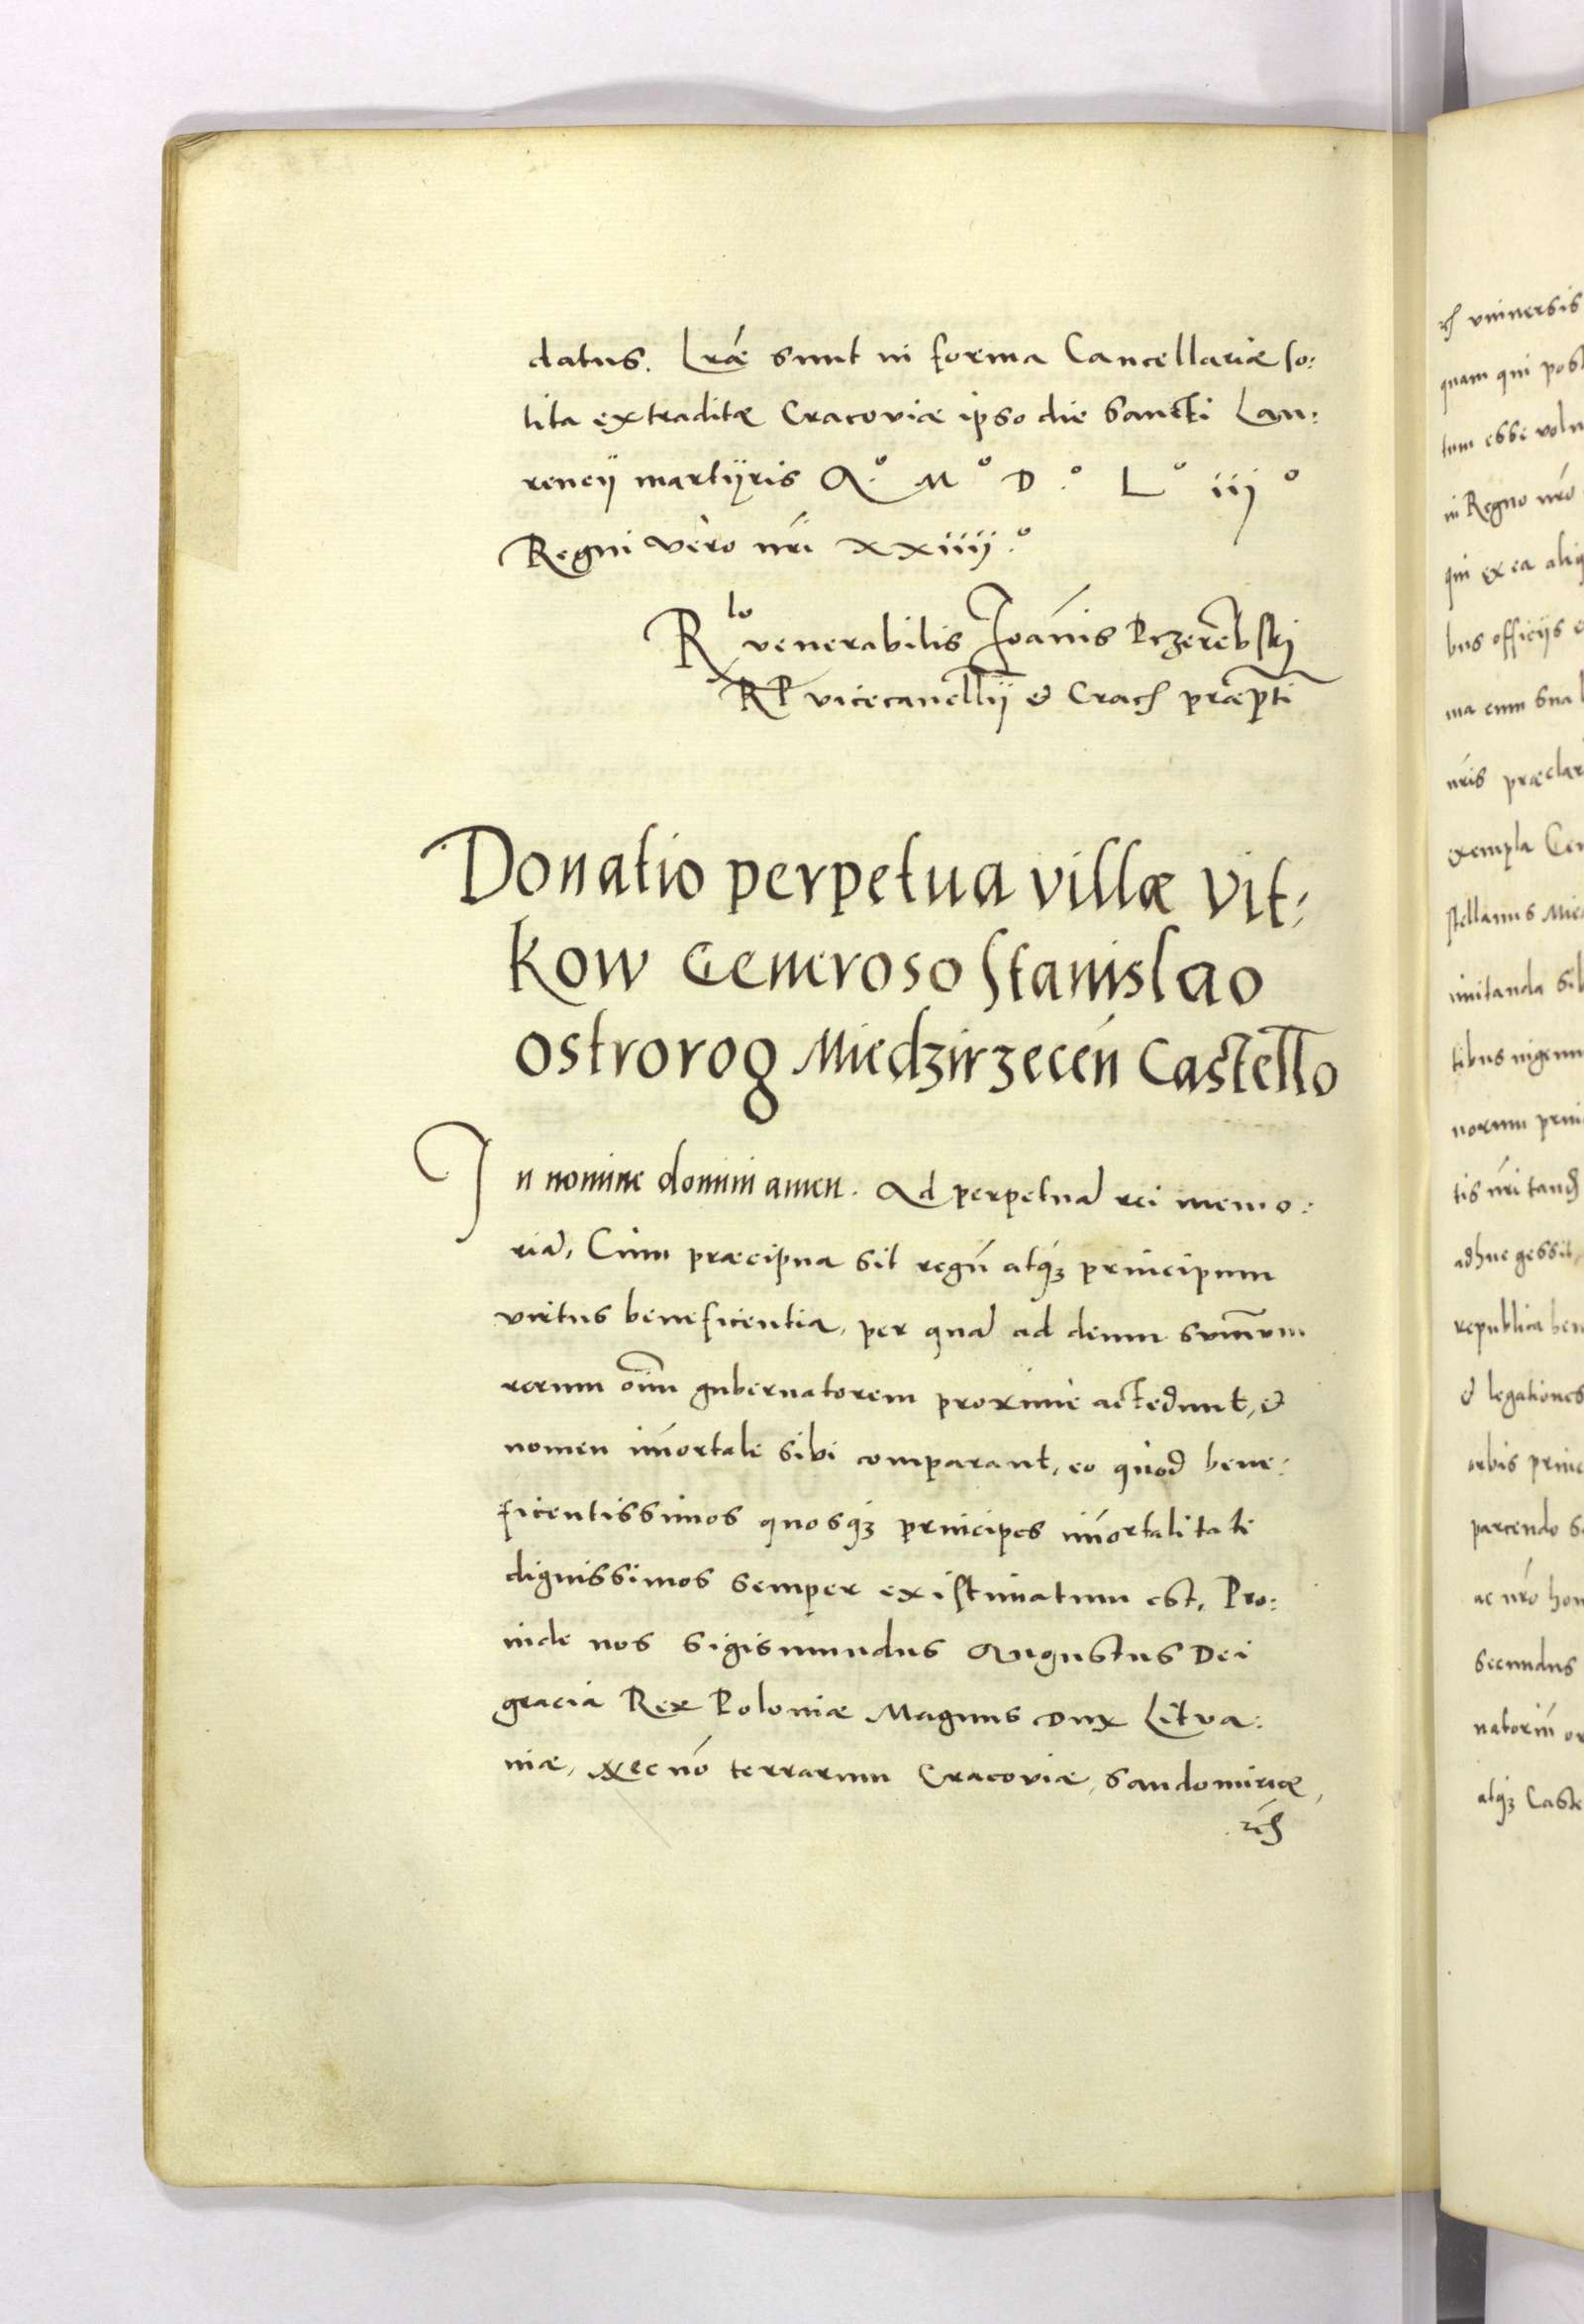 datus. Lr̃æ sunt in forma Cancellariæ so:
lita extraditæ Cracoviæ ipso die Sancti Lau:
rencij martyris A.º Mº D.º Lº iijº
Regni vero nr̃i xxiiij.º
Rlo venerabilis Ioãnis Przerẽbski
RP vicecancellrij et Crac præpti
Donatio perpetua villæ Vit:
kow Generoso Stanislao
ostrorog Miedzirzeceń Castello
In nomine domini amen. Ad perpetuã rei memo:
riã, Cum præcipua sit regũ atq3 principum
virtus beneficentia, per quã ad deum sum̃um
rerum oĩm gubernatorem proxime accedunt, et
nomen im̃ortale sibi comparant, eo quod bene:
ficentissimos quosq3 principes im̃ortalitate
dignissimos semper existimatum est, Pro:
inde nos Sigismundus Augustus Dei
gracia Rex Poloniæ Magnus Dux Litva:
niæ, Nec nõ terrarum Cracoviæ, Sandomiriæ,
rẽ
rẽ vniuersis
quam qui post
tum esse volu
in Regno nr̃o
qui ex ea aliq
bus officijs e
ma cum sua
nr̃is præclar
exempla
stellanus Mied
imitanda sib
tibus ingenu
norum prin
tis nr̃i
adhuc gessit,
republica ben
et legationes
orbis princ
parcendo s
ac nr̃o hon
secundus
natoriũ or
atq3 Caste